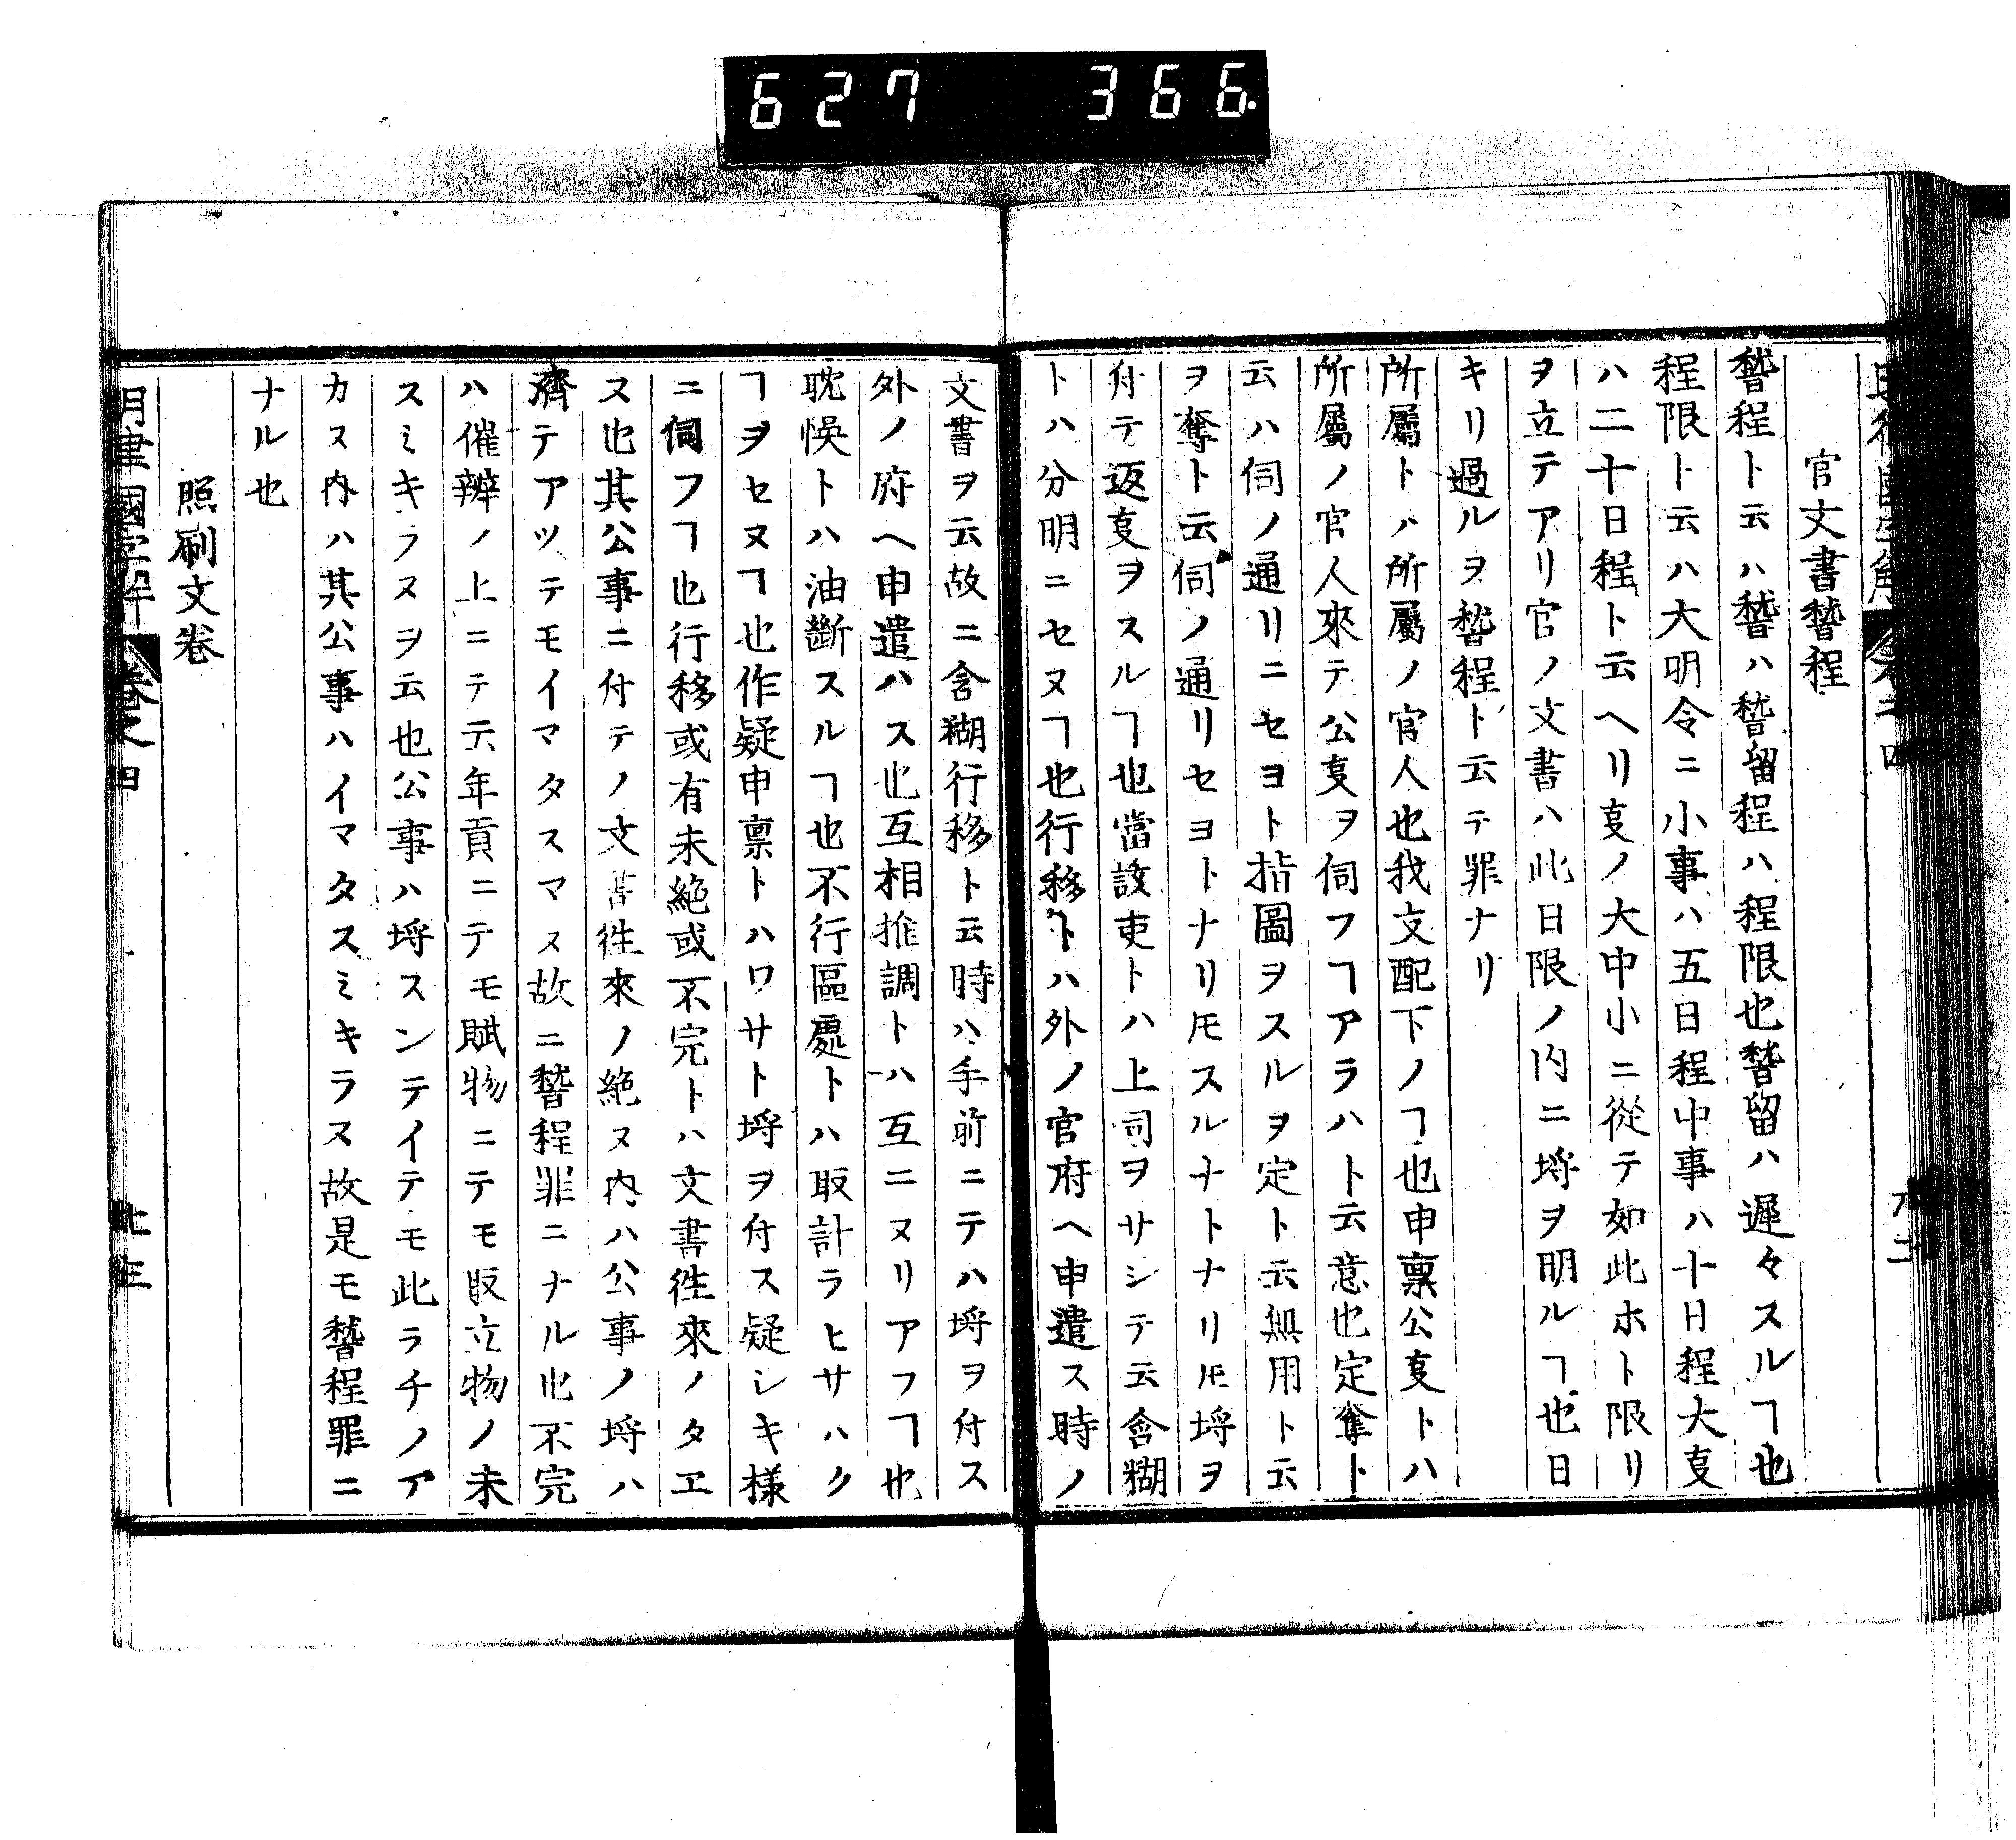 627 366.
官文書稽程
稽程ト云ハ稽ハ稽留程ハ程限也稽留ハ遲々スルヿ也
程限ト云ハ大明令ニ小事ハ五日程中事ハ十日程大叓
ハ二十日程ト云ヘリ叓ノ大中小ニ從テ如此ホト限リ
ヲ立テアリ官ノ文書ハ此日限ノ内ニ埓ヲ明ルヿ也日
キリ過ルヲ稽程ト云テ罪ナリ
所屬トハ所屬ノ官人也我支配下ノヿ也申禀公叓トハ
所屬ノ官人來テ公叓ヲ伺フヿアラハト云意也定奪ト
云ハ伺ノ通リニセヨト指圖ヲスルヲ定ト云無用ト云
ヲ奪ト云伺ノ通リセヨトナリ𪜈スルナトナリ𪜈埓ヲ
付テ返叓ヲスルヿ也當該吏トハ上司ヲサシテ云含糊
トハ分明ニセヌヿ也行移トハ外ノ官府ヘ申遣ス時ノ
文書ヲ云故ニ含糊行移ト云時ハ手前ニテハ埓ヲ付ス
外ノ府ヘ申遣ハス也互相推調トハ互ニヌリアフヿ也
耽悞トハ油斷スルヿ也不行區處トハ取計ラヒサハク
ヿヲセヌヿ也作疑申禀トハワサト埓ヲ付ス疑シキ様
ニ伺フヿ也行移或有未絶或不完トハ文書徃來ノタエ
ヌ也其公事ニ付テノ文書徃來ノ絶ヌ内ハ公事ノ埓ハ
濟テアツテモイマタスマヌ故ニ稽程罪ニナル也不完
ハ催辦ノ上ニテ云年貢ニテモ賦物ニテモ取立物ノ未
スミキラヌヲ云也公事ハ埓スンテイテモ此ラチノア
カス内ハ其公事ハイマタスミキラヌ故是モ稽程罪ニ
ナル也
照刷文卷
明律國字解 卷之四 七三